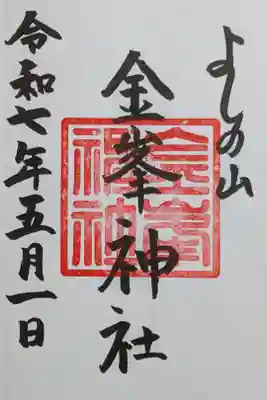 よしの山
金峯神社
令和七年五月一日